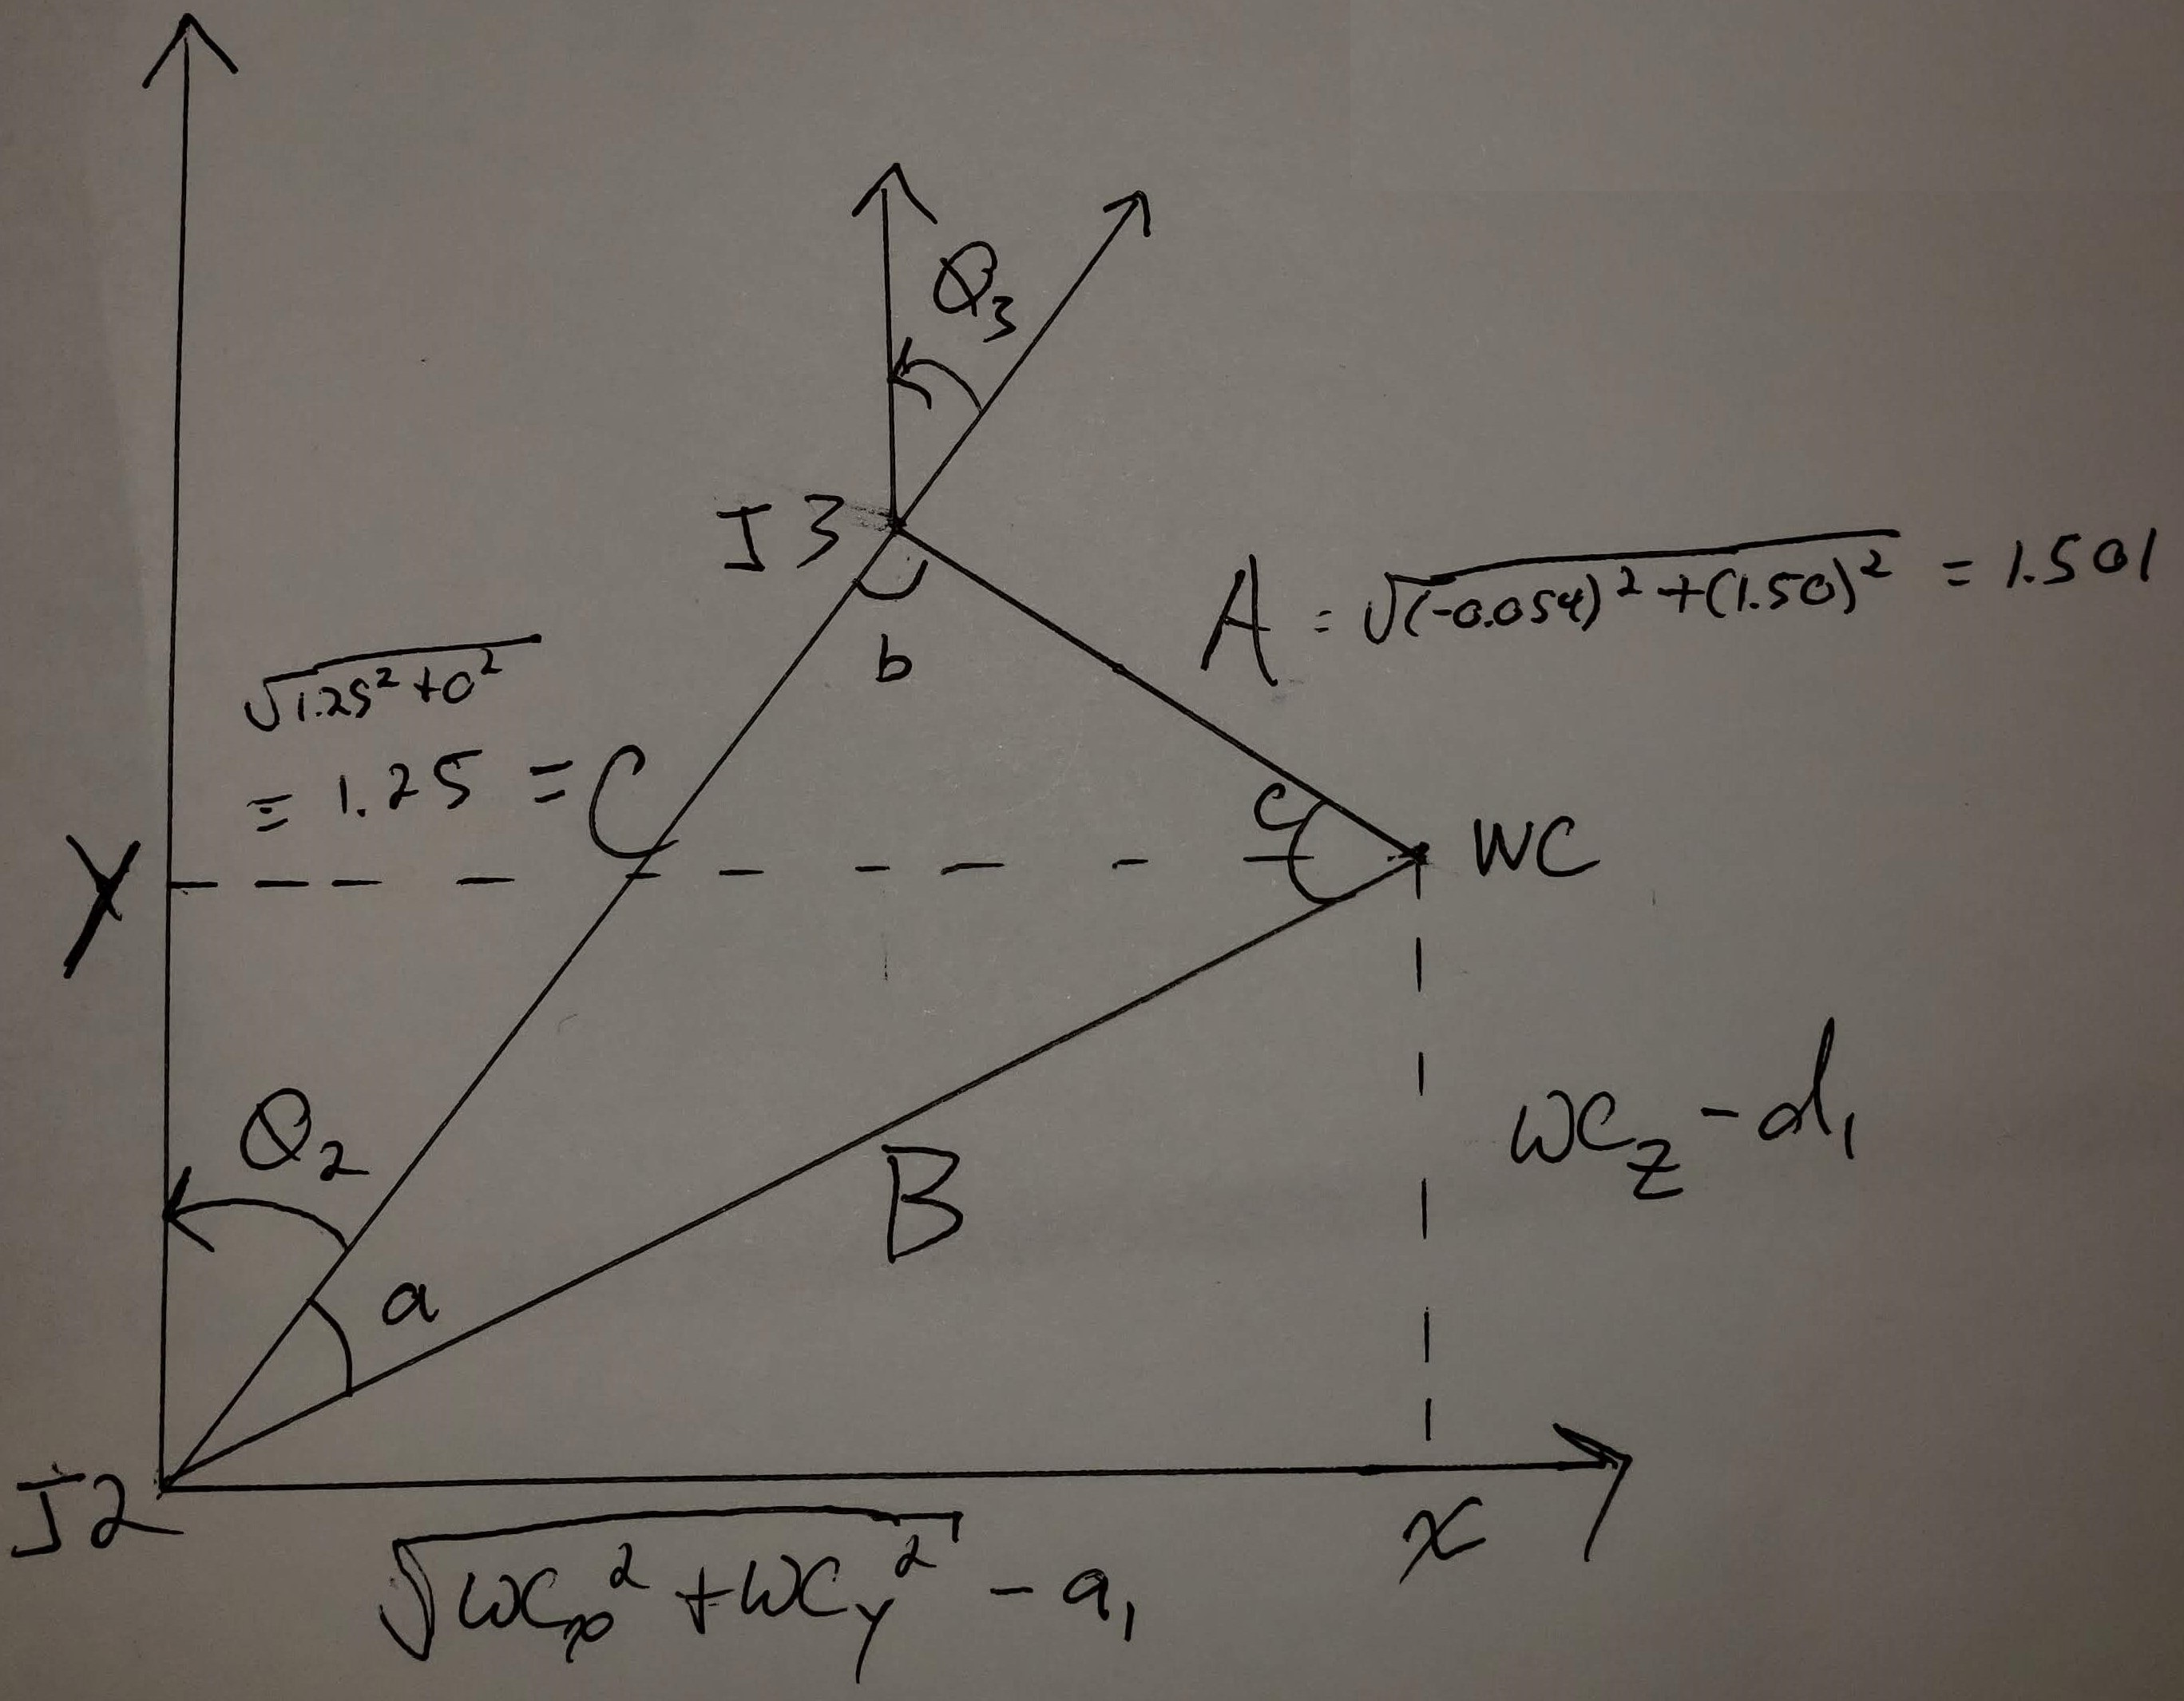 Θ₃
J3
A = √(-0.054)² + (1.50)² = 1.501
b
√1.25² + 0²
= 1.25 = C
c
WC
Y
Θ₂
WC_z - d₁
B
a
J2
x
√WC_x² + WC_y² - a₁